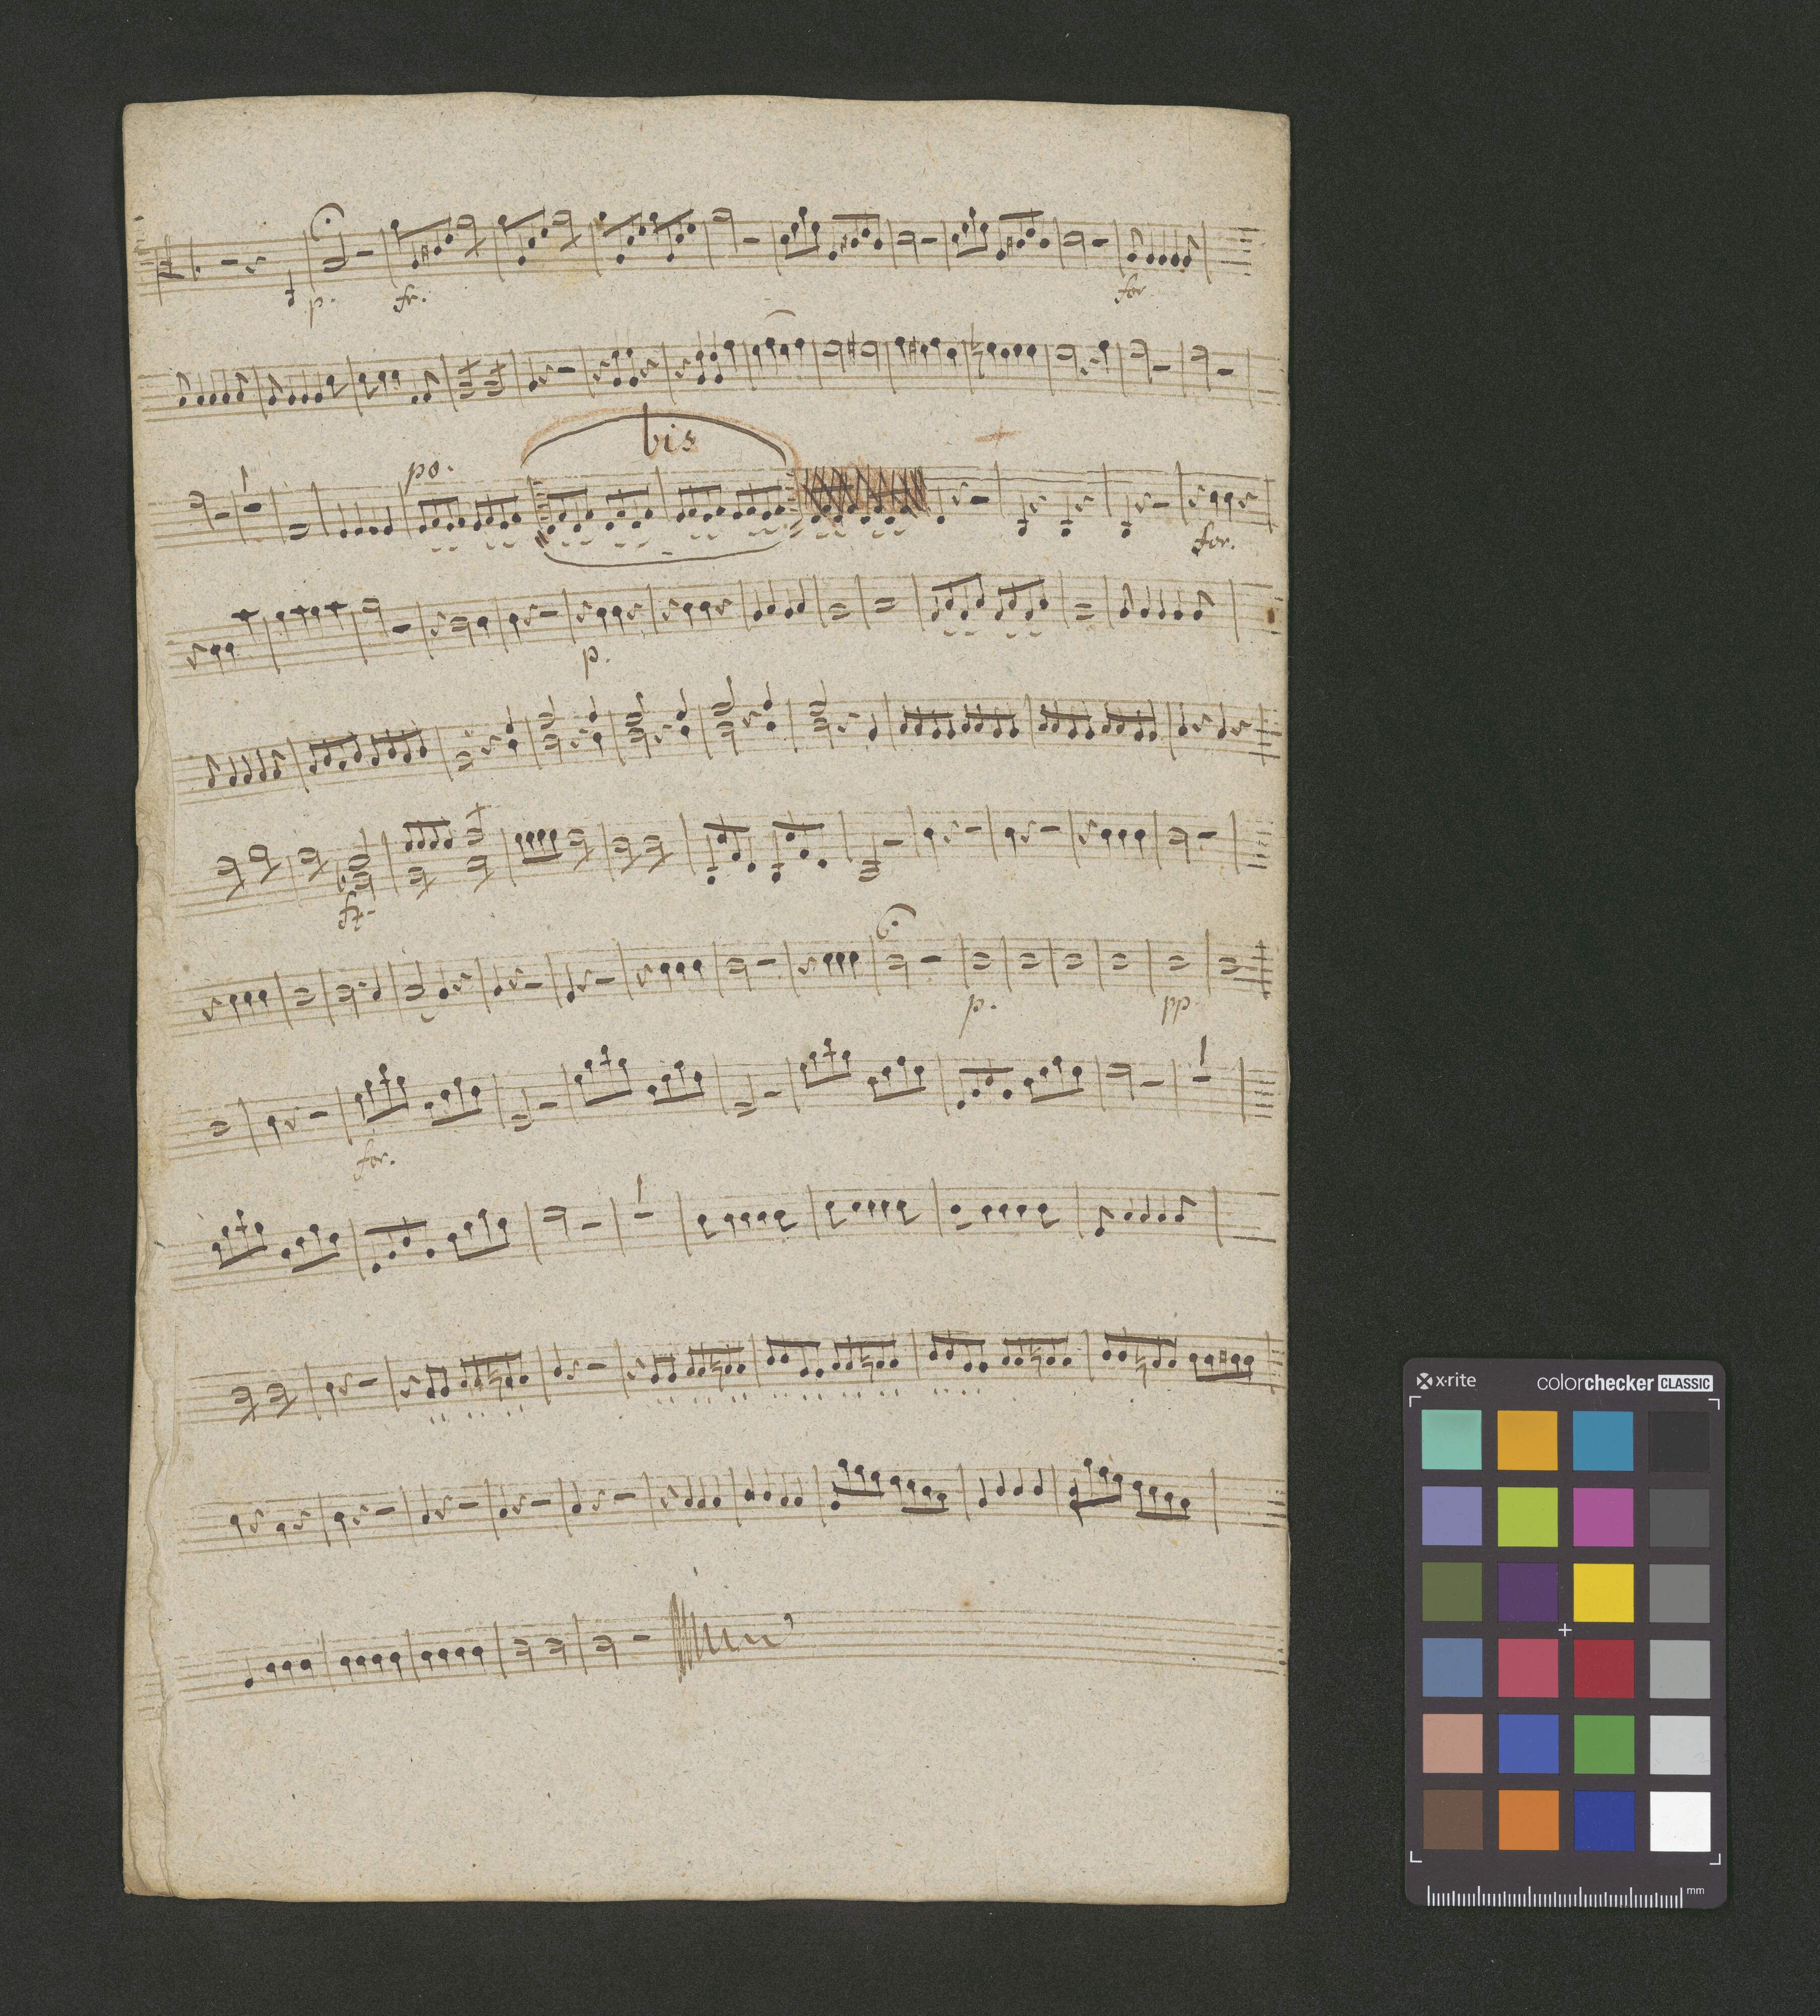 p. fr. for
bis
po.
for.
p.
ff.
p. pp
for.
x·rite colorchecker CLASSIC
mm